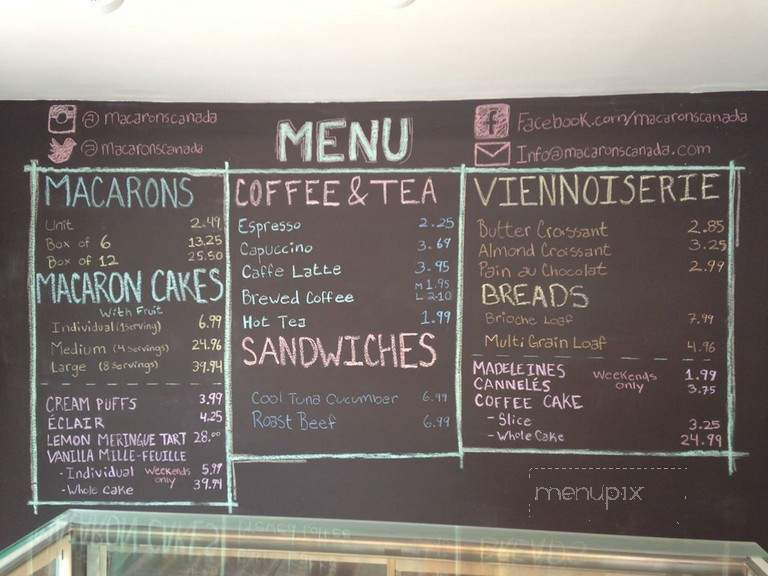 @macaronscanada
@macaronscanada
MENU
Facebook.com/macaronscanada
Info@macaronscanada.com
MACARONS
Unit 2.49
Box of 6 13.25
Box of 12 25.50
MACARON CAKES
With Fruit
Individual (1 serving) 6.99
Medium (4 servings) 24.96
Large (8 servings) 39.94
CREAM PUFFS 3.99
ÉCLAIR 4.25
LEMON MERINGUE TART 28.00
VANILLA MILLE-FEUILLE
- Individual Weekends 5.99
- Whole cake only 39.94
COFFEE & TEA
Espresso 2.25
Capuccino 3.69
Caffe Latte 3.95
M 1.95
Brewed Coffee L 2.10
Hot Tea 1.99
SANDWICHES
Cool Tuna Cucumber 6.99
Roast Beef 6.99
VIENNOISERIE
Butter Croissant 2.85
Almond Croissant 3.25
Pain au Chocolat 2.99
BREADS
Brioche Loaf 7.99
Multi Grain Loaf 4.96
MADELEINES Weekends 1.99
CANNELÉS only 3.75
COFFEE CAKE
- Slice 3.25
- Whole Cake 24.99
menupix